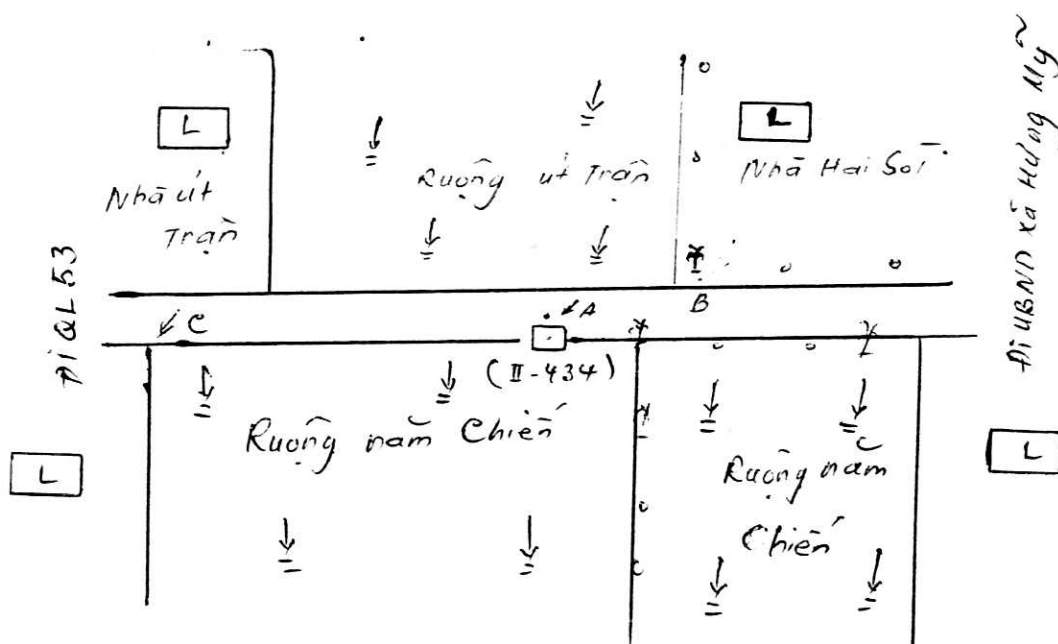 L
Nhà út
Trận
Ruộng út Trận
L
Nhà Hai Sơi
Đi QL53
Đi UBND xã Hưng Mỹ
C
A
B
(II-434)
Ruộng năm Chiến
Ruộng năm
Chiến
L
L